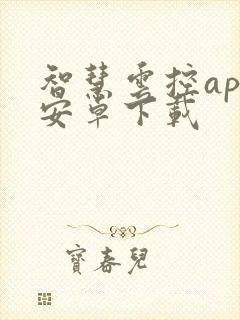 智慧雲控ap
安卓下載
寶春兒